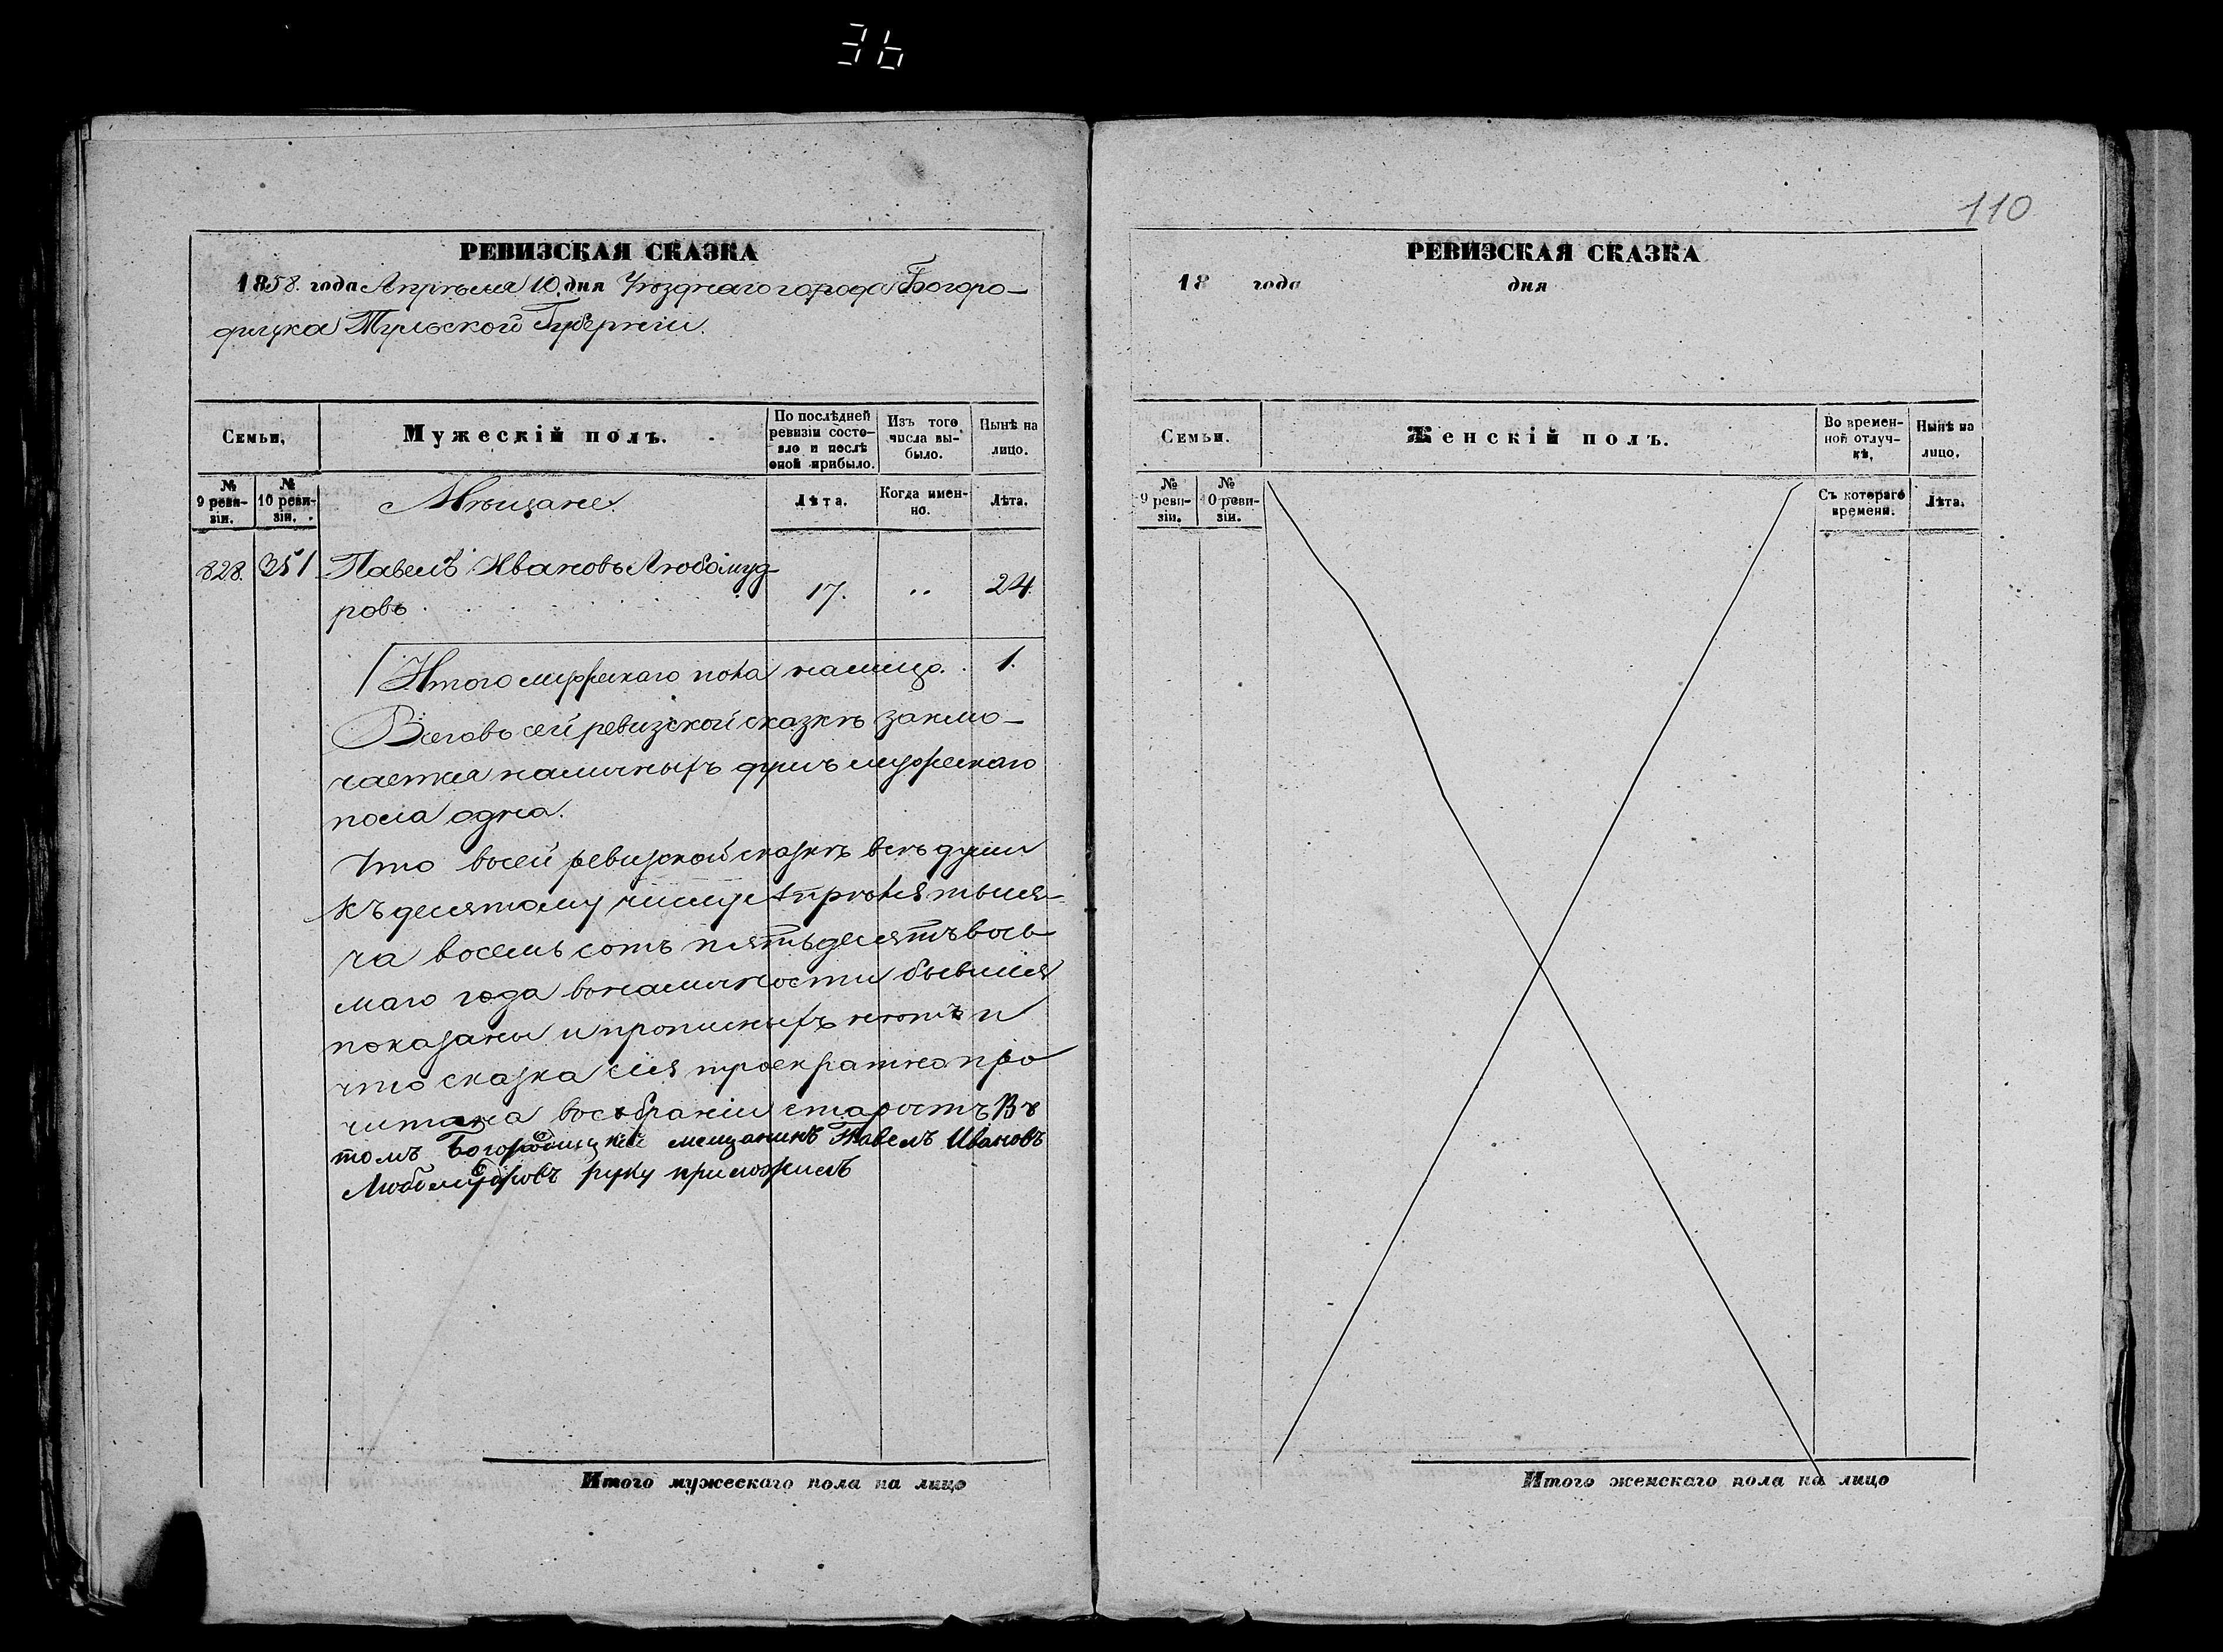 36
РЕВИЗСКАЯ СКАЗКА
1858. года Апрѣля 10. дня Уѣзднаго города Богоро-
дицка Тульской Губерніи.
Семьи,
Мужескій полъ.
По послѣдней ревизіи состояло и послѣ оной прибыло.
Изъ того числа выбыло.
Нынѣ на лицо.
№ 9 ревизіи.
№ 10 ревизіи.
Мѣщане.
Лѣта.
Когда именно.
Лѣта.
828. 351 Павелъ Ивановъ Любомуд-
ровъ 17. 24.
Итого мужескаго пола налицо. 1.
Всего въ сей ревизской сказкѣ заклю-
чается наличныхъ душъ мужескаго
пола одна.
Что въ сей ревизской сказкѣ всѣ души
къ десятому числу Апрѣля тыся-
ча восемь сотъ пятьдесятъ вось-
маго года въ наличности бывшія
показаны и прописныхъ нѣтъ и
что сказка сія троекратно про
читана въ собраніи старостъ Въ
томъ Богородицкій мещанинъ Павелъ Ивановъ
Любомудровъ руку приложилъ
Итого мужескаго пола на лицо
110
РЕВИЗСКАЯ СКАЗКА
18 года дня
Семьи.
Женскій полъ.
Во временной отлучкѣ,
Нынѣ на лицо,
№ 9 ревизіи.
№ 10 ревизіи.
Съ котораго времени.
Лѣта.
Итого женскаго пола на лицо